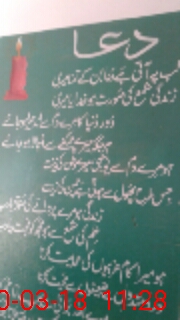 دعا
لب پہ آتی ہے دعا بن کے تمنا میری
زندگی شمع کی صورت ہو خدایا میری
دور دنیا کا مرے دم سے اندھیرا ہو جائے
ہر جگہ میرے چمکنے سے اجالا ہو جائے
ہو مرے دم سے یونہی میرے وطن کی زینت
جس طرح پھول سے ہوتی ہے چمن کی زینت
زندگی ہو مری پروانے کی صورت
علم کی شمع سے ہو مجھ کو محبت
ہو میرا کام غریبوں کی حمایت کرنا
0-03-18 11:28